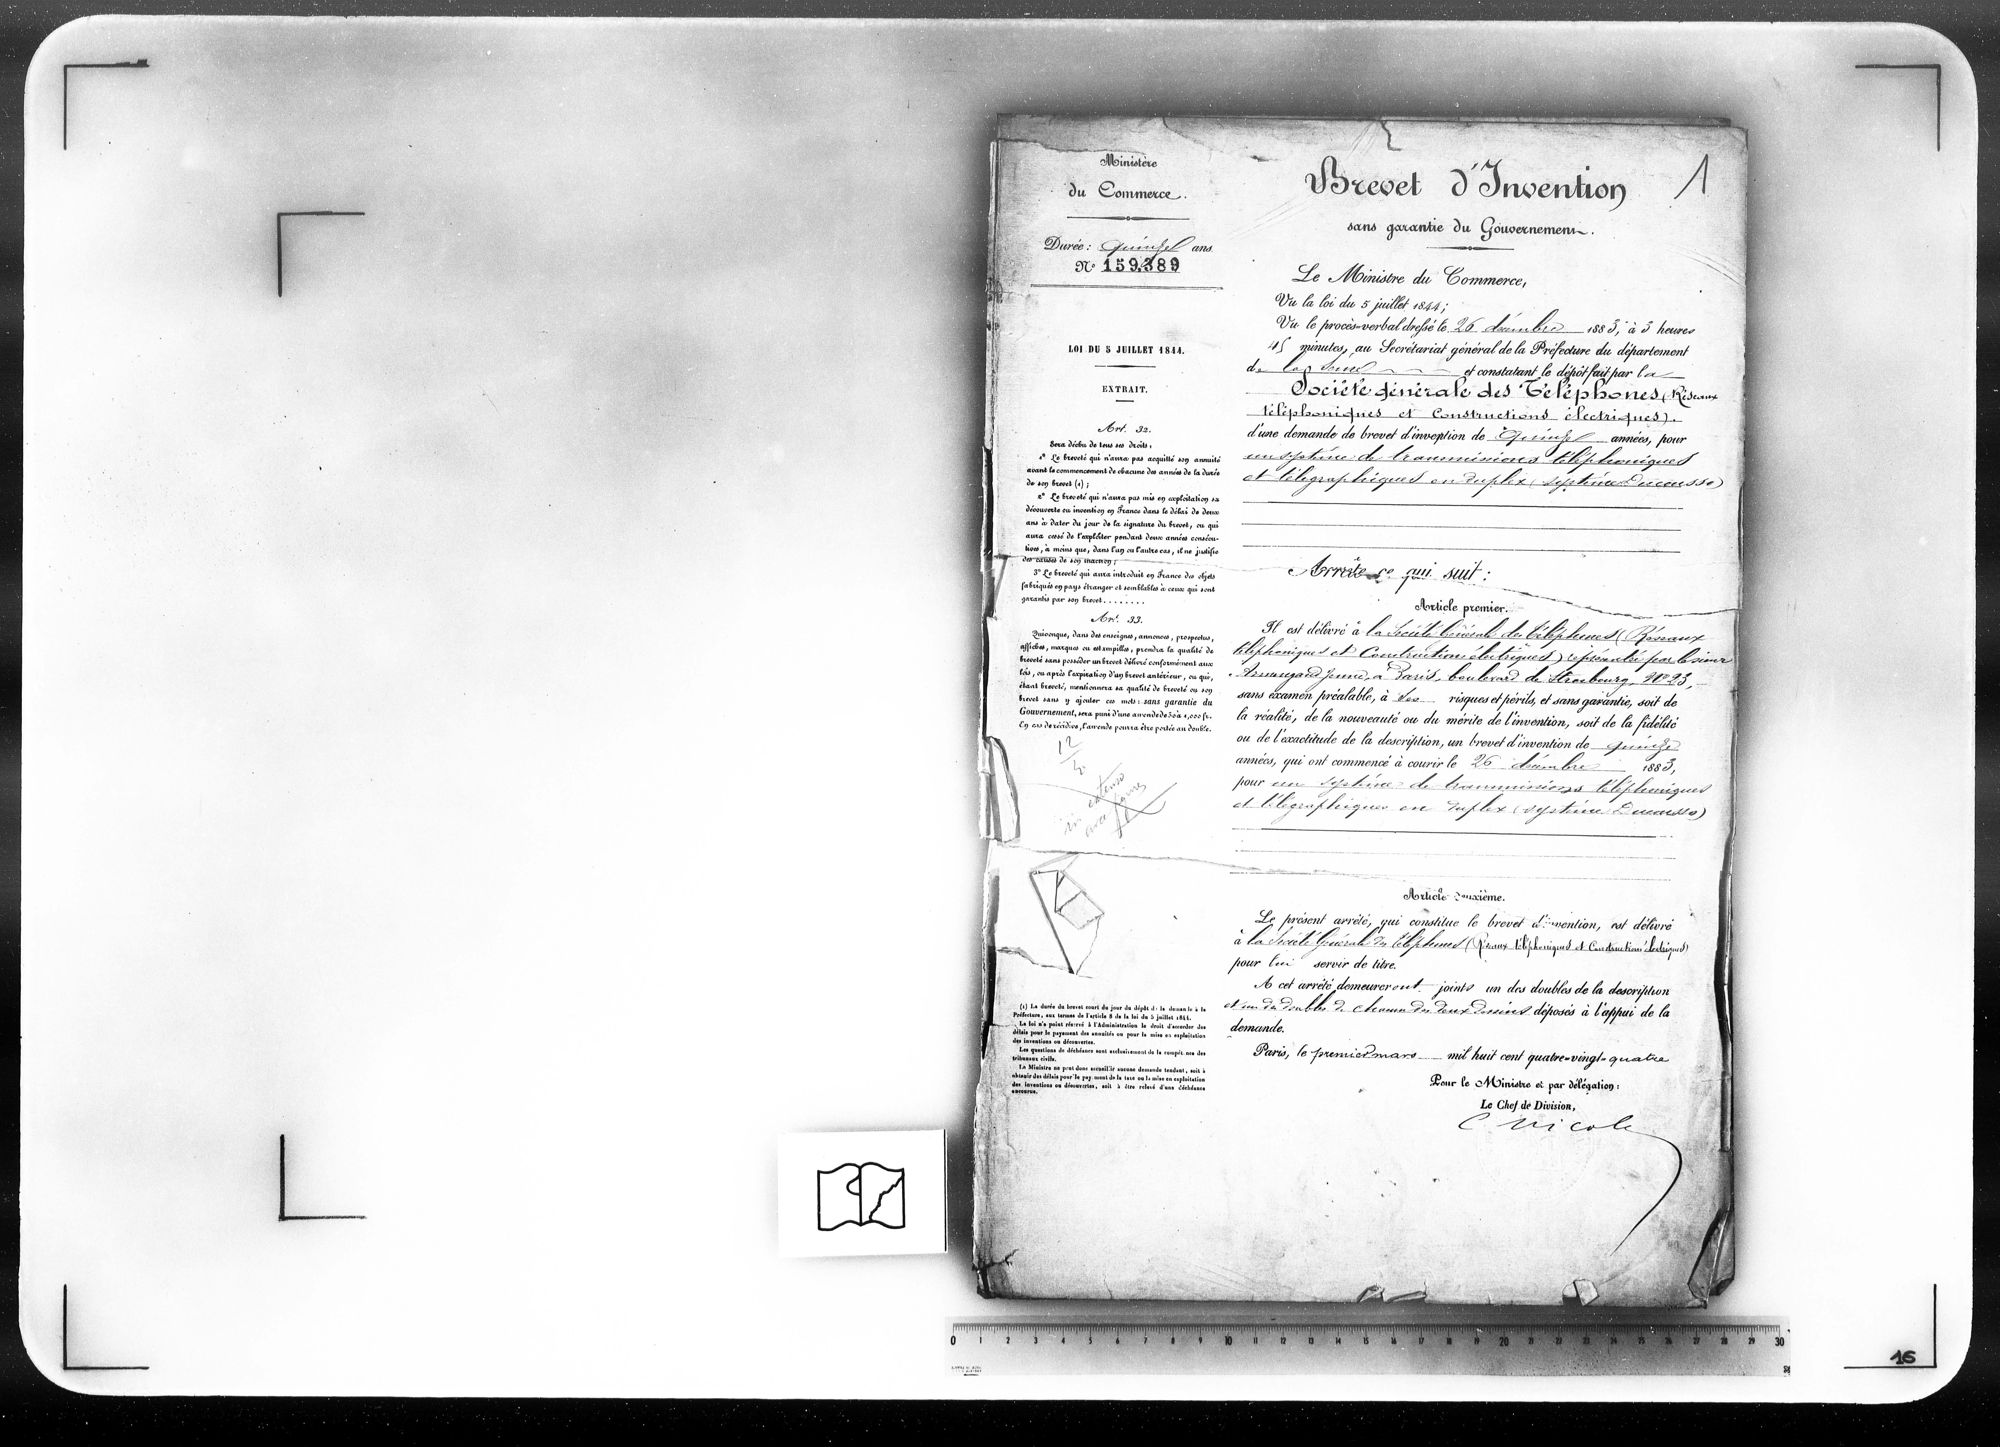 Ministère
du Commerce.
Durée : quinze ans.
N° 159,389
LOI DU 5 JUILLET 1844.
EXTRAIT.
Art. 32.
Sera déchu de tous ses droits :
1° Le breveté qui n'aura pas acquitté son annuité
avant le commencement de chacune des années de la durée
de son brevet (1) ;
2° Le breveté qui n'aura pas mis en exploitation sa
découverte ou invention en France dans le délai de deux
ans à dater du jour de la signature du brevet, ou qui
aura cessé de l'exploiter pendant deux années consécu-
tives, à moins que, dans l'un ou l'autre cas, il ne justifie
des causes de son inaction ;
3° Le breveté qui aura introduit en France des objets
fabriqués en pays étranger et semblables à ceux qui sont
garantis par son brevet........
Art. 33.
Quiconque, dans des enseignes, annonces, prospectus,
affiches, marques ou estampilles, prendra la qualité de
breveté sans posséder un brevet délivré conformément aux
lois, ou après l'expiration d'un brevet antérieur, ou qui,
étant breveté, mentionnera sa qualité de breveté ou son
brevet sans y ajouter ces mots : sans garantie du
Gouvernement, sera puni d'une amende de 50 à 1,000 fr.
En cas de récidive, l'amende pourra être portée au double.
12
in extenso
avec
(1) La durée du brevet court du jour du dépôt de la demande à la
Préfecture, aux termes de l'article 8 de la loi du 5 juillet 1844.
La loi n'a point réservé à l'Administration le droit d'accorder des
délais pour le payement des annuités ou pour la mise en exploitation
des inventions ou découvertes.
Les questions de déchéance sont exclusivement de la compétence des
tribunaux civils.
Le Ministre ne peut donc accueillir aucune demande tendant, soit à
obtenir des délais pour le payement de la taxe ou la mise en exploitation
des inventions ou découvertes, soit à être relevé d'une déchéance
encourue.
Brevet d'Invention
1
sans garantie du Gouvernement.
Le Ministre du Commerce,
Vu la loi du 5 juillet 1844 ;
Vu le procès-verbal dressé le 26 décembre 1883, à 3 heures
45 minutes, au Secrétariat général de la Préfecture du département
de la Seine et constatant le dépôt fait par la
Société générale des Téléphones (Réseaux
téléphoniques et Constructions électriques).
d'une demande de brevet d'invention de quinze années, pour
un système de transmissions téléphoniques
et télégraphiques en duplex (système Ducousso)
Arrête ce qui suit :
Article premier.
Il est délivré à la Société Générale des Téléphones (Réseaux
téléphoniques et Constructions électriques) représentée par le sieur
Armengaud Jeune, à Paris, boulevard de Strasbourg, N° 23,
sans examen préalable, à ses risques et périls, et sans garantie, soit de
la réalité, de la nouveauté ou du mérite de l'invention, soit de la fidélité
ou de l'exactitude de la description, un brevet d'invention de quinze
années, qui ont commencé à courir le 26 décembre 1883,
pour un système de transmissions téléphoniques
et télégraphiques en duplex (système Ducousso)
Article deuxième.
Le présent arrêté, qui constitue le brevet d'invention, est délivré
à la Société Générale des Téléphones (Réseaux téléphoniques et Constructions électriques)
pour lui servir de titre.
A cet arrêté demeureront joints un des doubles de la description
et un des doubles de chacun des deux dessins déposés à l'appui de la
demande.
Paris, le premier mars mil huit cent quatre-vingt-quatre
Pour le Ministre et par délégation :
Le Chef de Division,
C Nicole
0 1 2 3 4 5 6 7 8 9 10 11 12 13 14 15 16 17 18 19 20 21 22 23 24 25 26 27 28 29 30
16